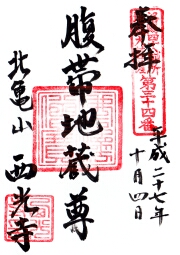 奉拝
第三十四番
平成二十七年
十月四日
腹帯地蔵尊
北亀山
西光寺